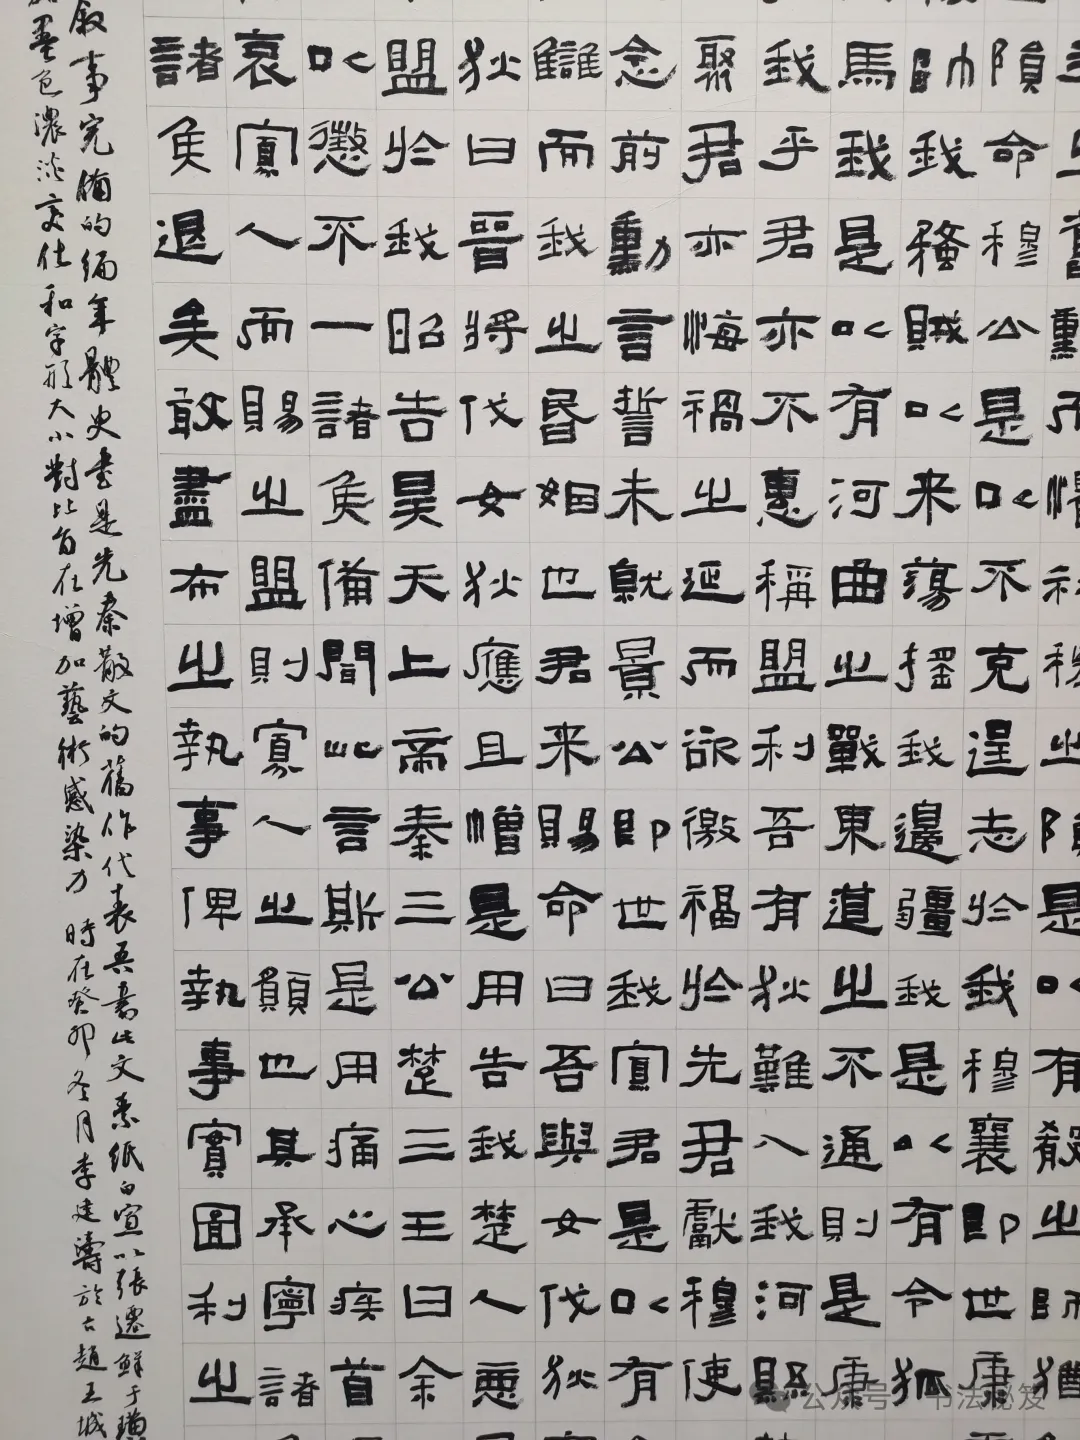 之舊勳而懼社稷之隕是以有殽之師猶
隕命穆公是以不克逞志於我穆襄即世康
帥我蟊賊以来蕩摇我邊疆我是以有令狐
馬我是以有河曲之戰東道之不通則是康
我乎君亦不惠稱盟利吾有狄難入我河縣
聚君亦悔禍之延而欲徼福於先君獻穆使
念前勳言誓未就景公即世我寡君是以有
讎而我之昏姻也君来賜命曰吾與女伐狄
狄曰晉將伐女狄應且憎是用告我楚人惡
盟於我昭告昊天上帝秦三公楚三王曰余
以懲不一諸侯備聞此言斯是用痛心疾首
哀寡人而賜之盟則寡人之願也其承寧諸
諸侯退矣敢盡布之執事俾執事實圖利之
叙事完備的编年體史書是先秦散文的舊作代表吾書此文素紙白宣以張遷鮮于璜
墨色濃淡变化和字形大小對比旨在增加藝術感染力 時在癸卯冬月李建濤於古趙王城
公众号·书法秘笈